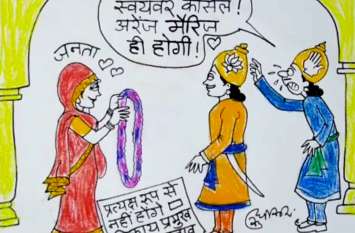 स्वयंवर कैंसिल!
अरेंज मैरिज
ही होगी!
जनता
प्रत्यक्ष रूप से
नहीं होंगे
प्रमुख